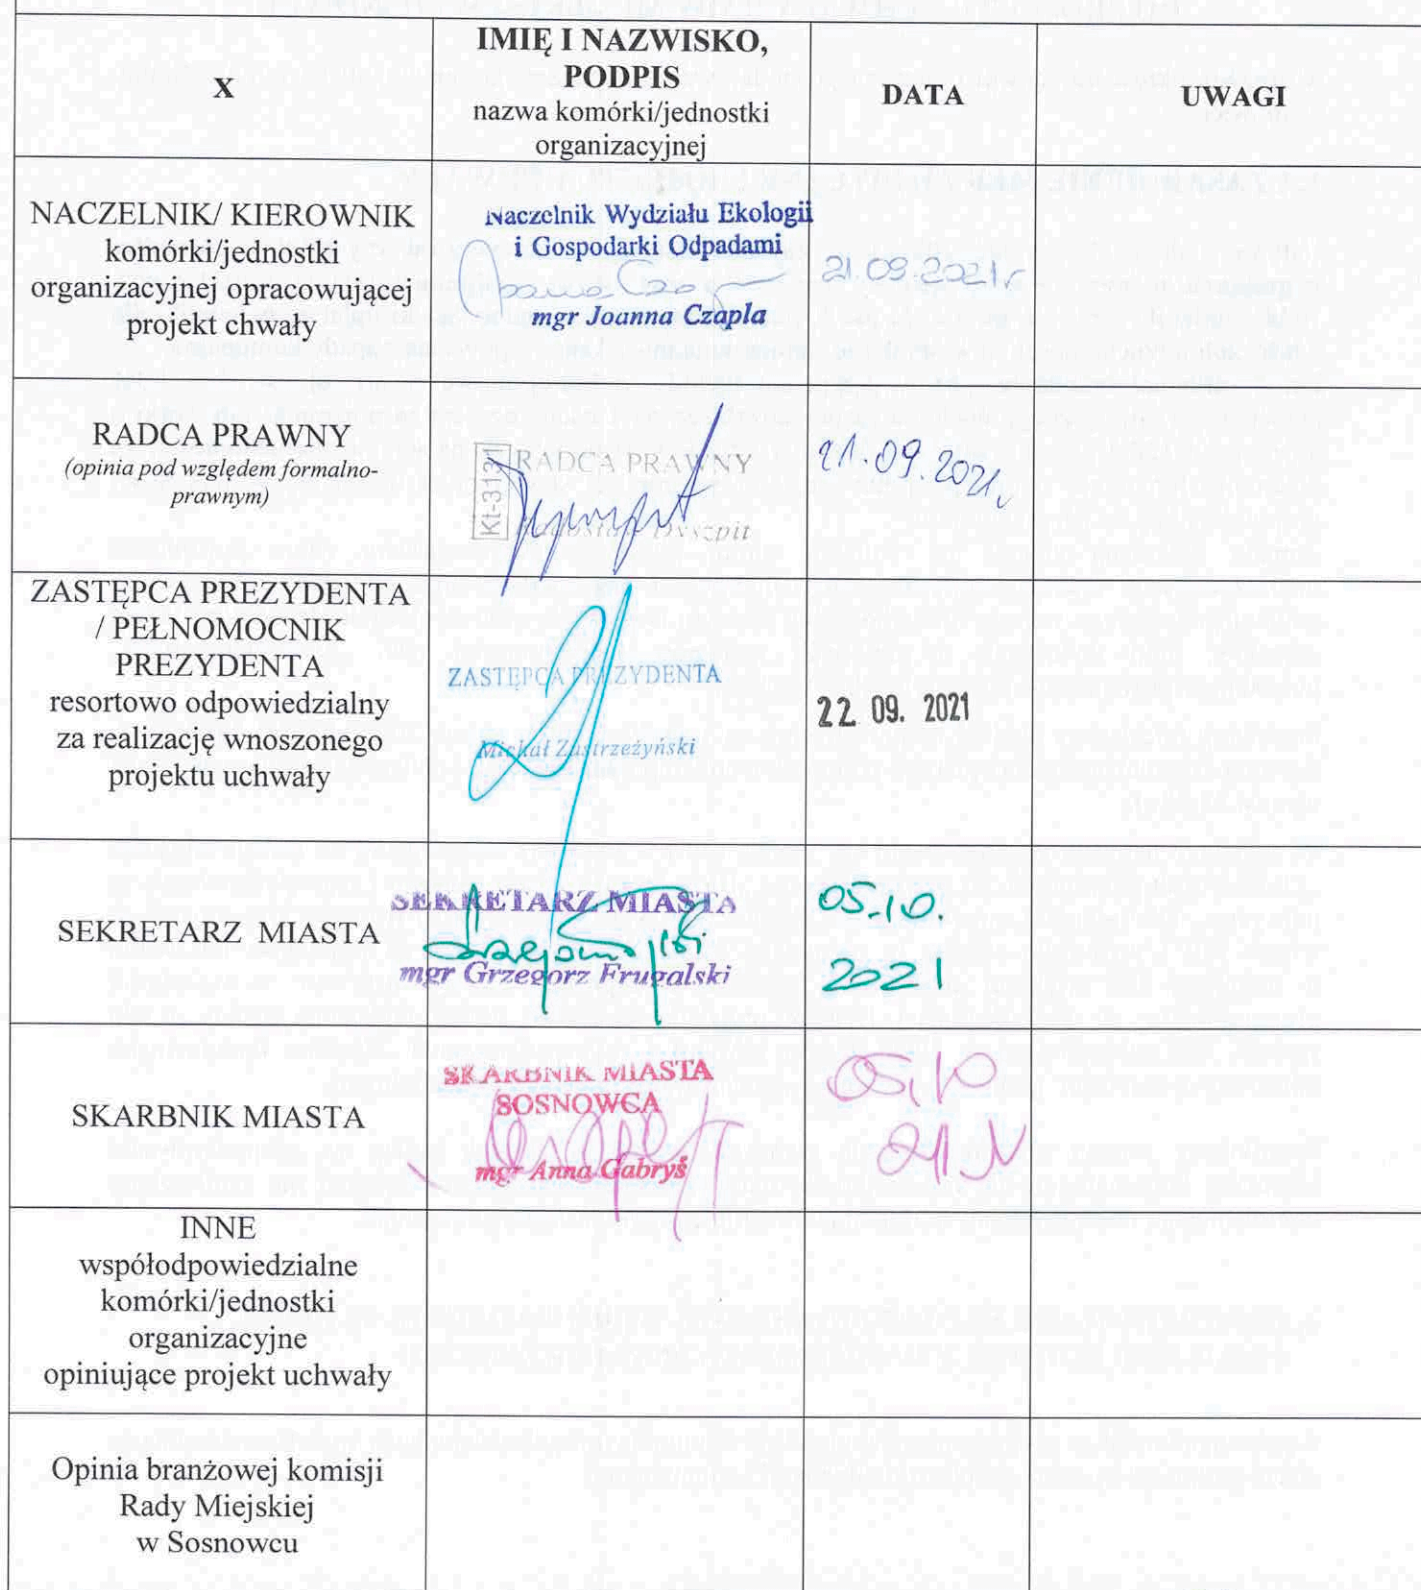 X
IMIĘ I NAZWISKO,
PODPIS
nazwa komórki/jednostki
organizacyjnej
DATA
UWAGI
NACZELNIK/ KIEROWNIK
komórki/jednostki
organizacyjnej opracowującej
projekt chwały
Naczelnik Wydziału Ekologii
i Gospodarki Odpadami
mgr Joanna Czapla
21.09.2021r
RADCA PRAWNY
(opinia pod względem formalno-
prawnym)
Kt-3131
RADCA PRAWNY
Radosław Dyszpit
21.09.2021r
ZASTĘPCA PREZYDENTA
/ PEŁNOMOCNIK
PREZYDENTA
resortowo odpowiedzialny
za realizację wnoszonego
projektu uchwały
ZASTĘPCA PREZYDENTA
Michał Zastrzeżyński
22 09. 2021
SEKRETARZ MIASTA
SEKRETARZ MIASTA
mgr Grzegorz Frugalski
05.10.
2021
SKARBNIK MIASTA
SKARBNIK MIASTA
SOSNOWCA
mgr Anna Gabryś
05.10
21 r
INNE
współodpowiedzialne
komórki/jednostki
organizacyjne
opiniujące projekt uchwały
Opinia branżowej komisji
Rady Miejskiej
w Sosnowcu